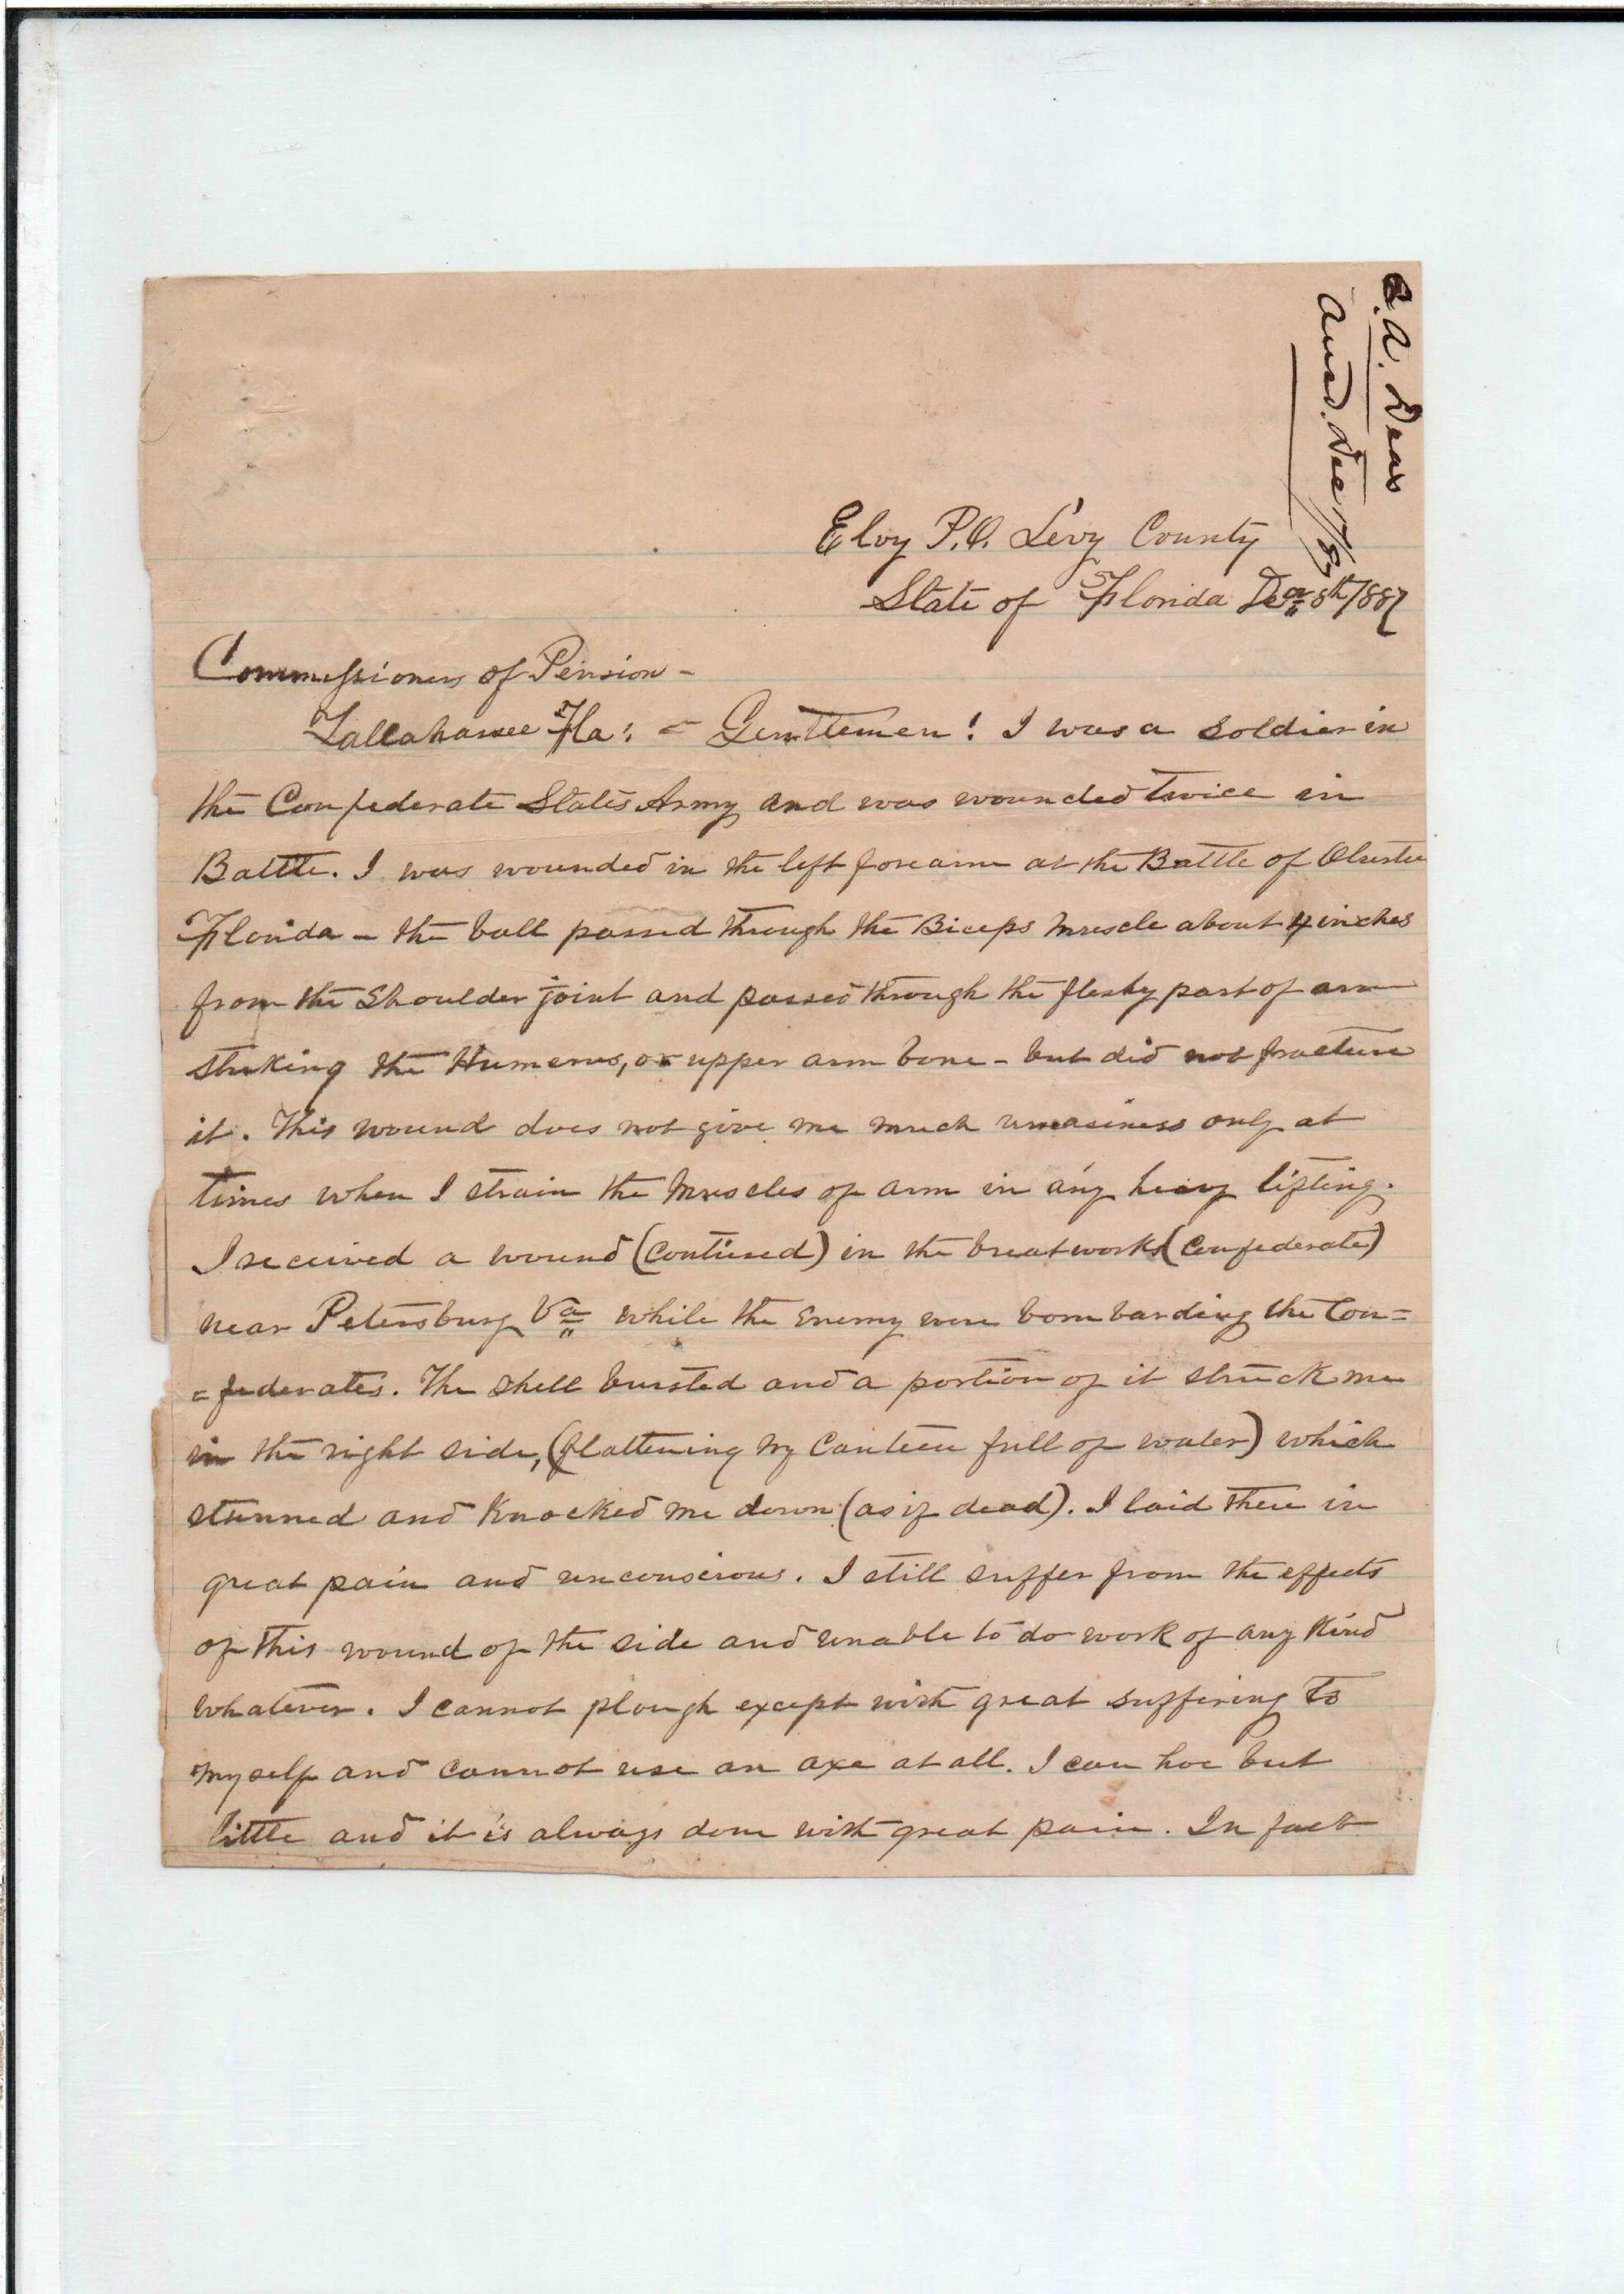 Ansd. Dec 17/87
Eloy P.O. Levy County
State of Florida 8th/887
Commissioners of Pension -
Tallahassee Fla: - Gentlemen! I was a soldier in
the Confederate States Army and was wounded twice in
Battle. I was wounded in the left forearm at the Battle of Olustee
Florida - the ball passed through the Biceps muscle about 4 inches
from the Shoulder joint and passed through the fleshy part of arm
striking the Humerus, or upper arm bone - but did not fracture
it. This wound does not give me much uneasiness only at
times when I strain the muscles of arm in any heavy lifting.
I received a wound (contused) in the breatworks (Confederate)
near Petersburg Va while the Enemy were bombarding the Con=
=federates. The shell bursted and a portion of it struck me
in the right side, (flattening my canteen full of water) which
stunned and knocked me down (as if dead). I laid there in
great pain and unconscious. I still suffer from the effects
of this wound of the side and unable to do work of any kind
whatever. I cannot plough except with great suffering to
myself and cannot use an axe at all. I can hoe but
little and it is always done with great pain. In fact